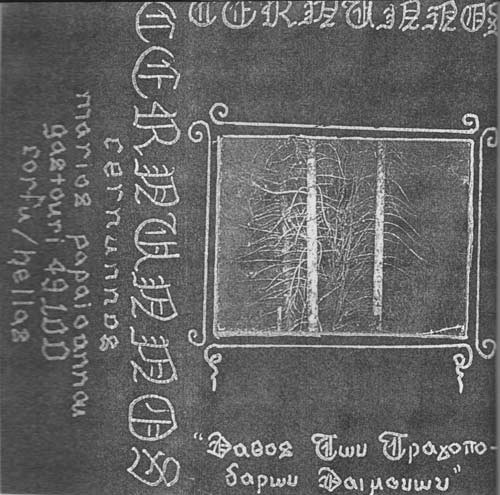 CERNUNNOS
CERNUNNOS
cernunnos
marios papaioannou
gastouri 49100
corfu/hellas
“Βαθος Των Τραγοπο-
δαρων Δαιμονων”